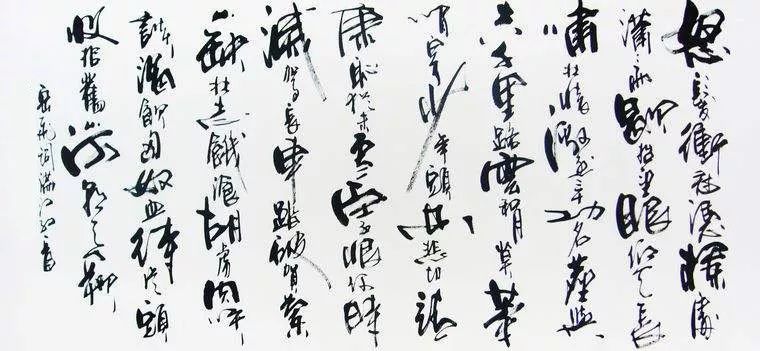 怒髮衝冠憑欄處
瀟瀟雨歇抬望眼仰天長
嘯壯懷激烈三十功名塵與
土八千里路雲和月莫等
閒白了少年頭空悲切靖
康恥猶未雪臣子恨何時
滅駕長車踏破賀蘭山
缺壯志饑飡胡虜肉笑
談渴飲匈奴血待從頭
收拾舊山河朝天闕
岳飛詞滿江紅書